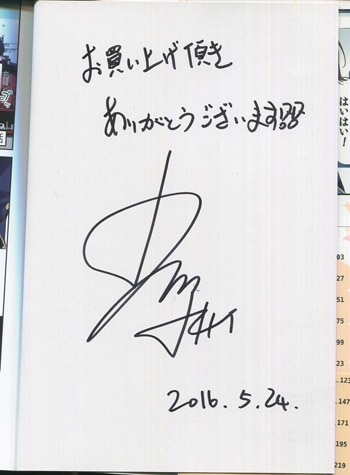 お買い上げ頂き
ありがとうございます!!!!
2016.5.24.
はいはい!
03
27
51
75
99
.123
.147
171
195
219